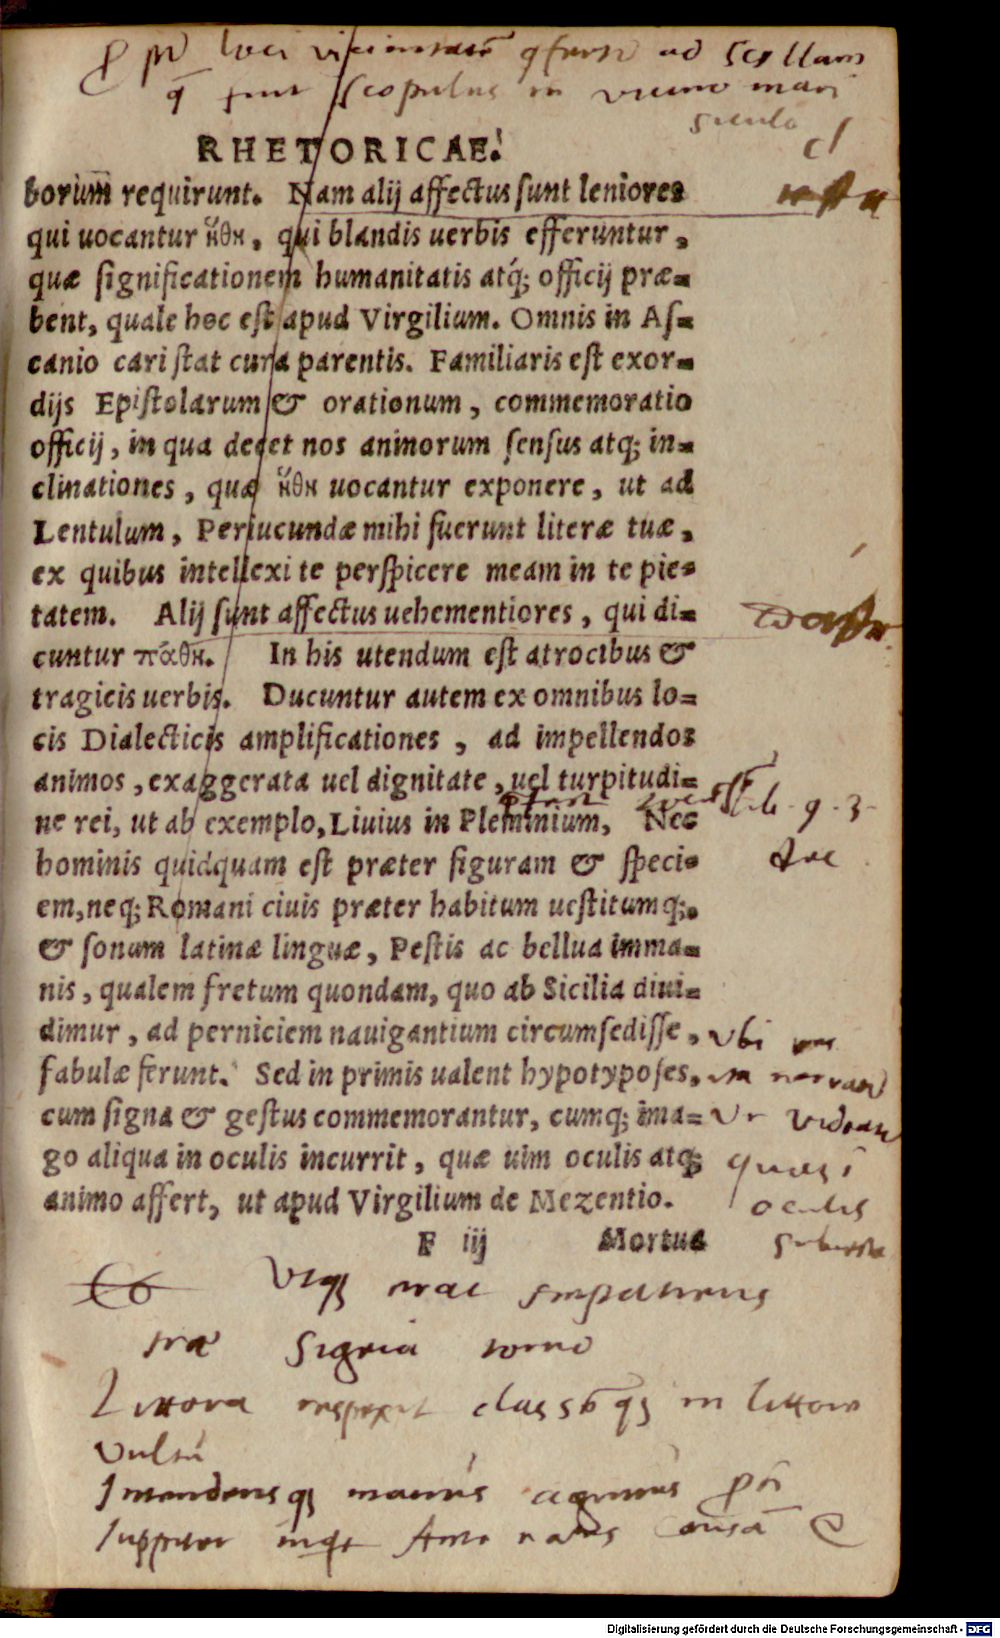 loci ad scyllam
sunt scopulus in vicino mari
siculo
RHETORICAE.
borium requirunt. Nam alij affectus sunt leniores
qui uocantur ἤθη, qui blandis uerbis efferuntur,
quæ significationem humanitatis atq́; officij præ-
bent, quale hoc est apud Virgilium. Omnis in As-
canio cari stat cura parentis. Familiaris est exor-
dijs Epistolarum & orationum, commemoratio
officij, in qua decet nos animorum sensus atq; in-
clinationes, quæ ἤθη uocantur exponere, ut ad
Lentulum, Periucundæ mihi fuerunt literæ tuæ,
ex quibus intellexi te perspicere meam in te pie-
tatem. Alij sunt affectus uehementiores, qui di-
cuntur πάθη. In his utendum est atrocibus &
tragicis uerbis. Ducuntur autem ex omnibus lo-
cis Dialecticis amplificationes, ad impellendos
animos, exaggerata uel dignitate, uel turpitudi-
ne rei, ut ab exemplo, Liuius in Pleminium, Nec
lib. 9. 3.
hominis quidquam est præter figuram & speci-
em, neq; Romani ciuis præter habitum uestitumq;.
& sonum latinæ linguæ, Pestis ac bellua imma-
nis, qualem fretum quondam, quo ab Sicilia diui-
dimur, ad perniciem nauigantium circumsedisse,
Vbi res
fabulæ ferunt. Sed in primis ualent hypotyposes,
ita narrant
cum signa & gestus commemorantur, cumq; ima-
Vt videant
go aliqua in oculis incurrit, quæ uim oculis atq;
quasi
animo affert, ut apud Virgilium de Mezentio.
oculis
F iij Mortua
Vtq; erat impatiens
iræ Sigeia toruo
Littora respexit classẽq; in littore
vultu
Intendensq; manus agimus
Iuppiter inqt Ante rates causã &